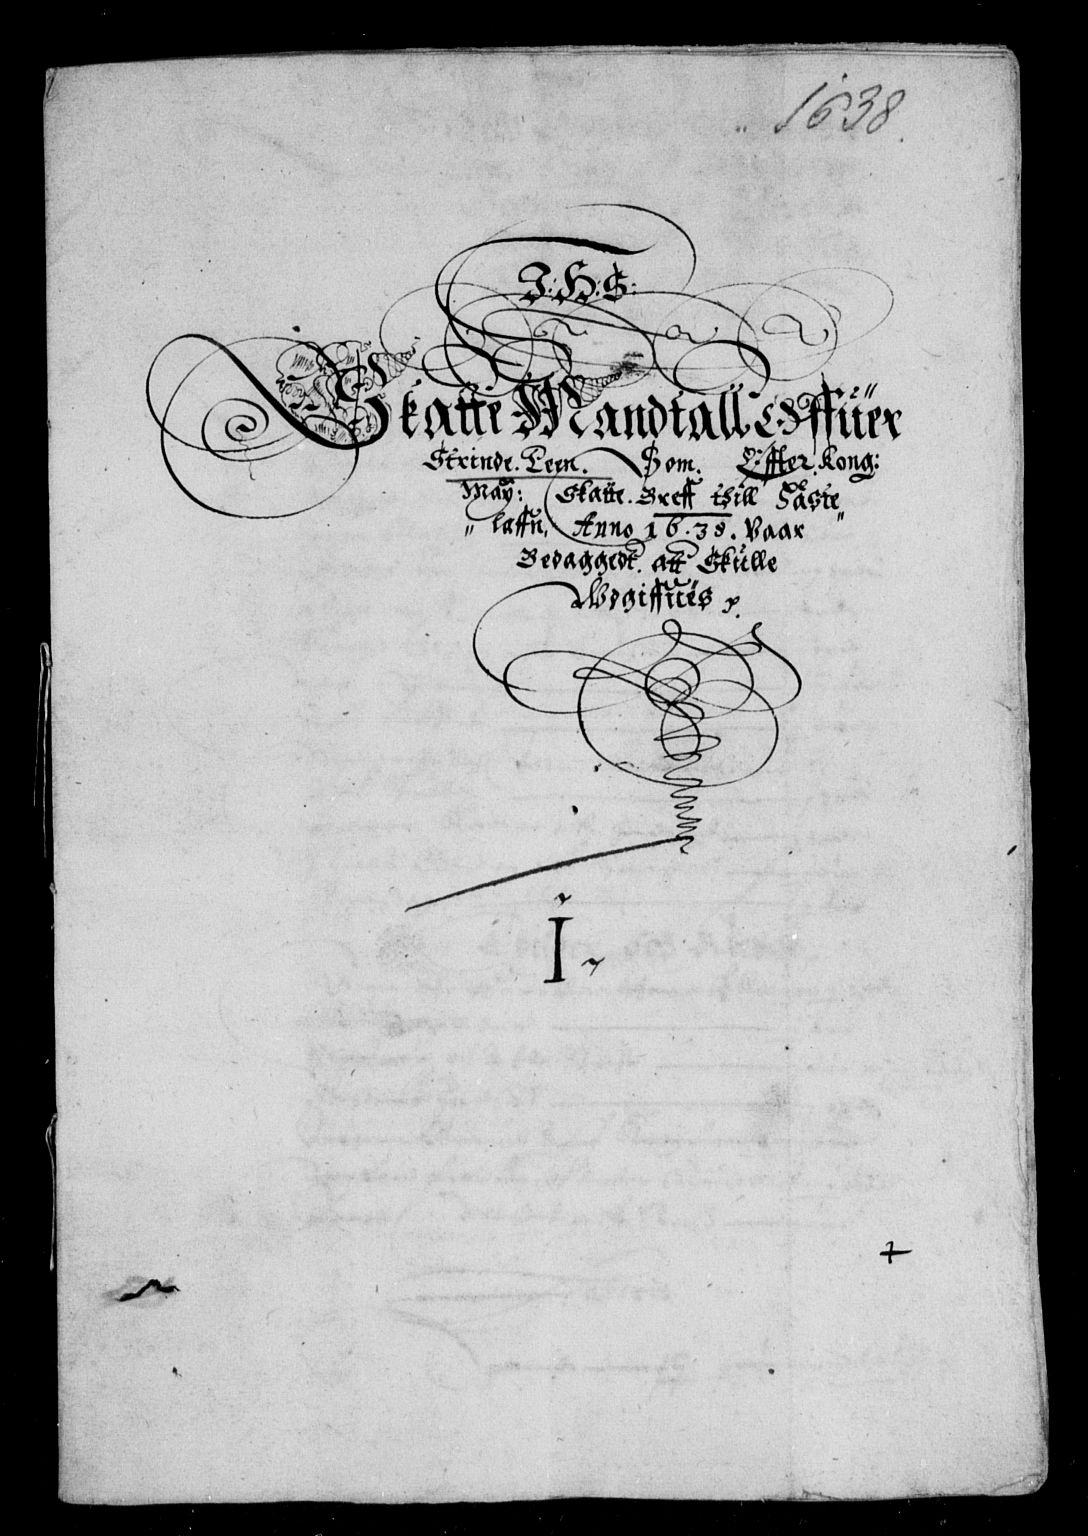 1638.
J: H: S:
Skatte Mandtall Offuer
Strinde. Leen. Som. Effter. Kong:
May: Skatte. Breff thill Faste
laffn, Anno 16.38. Vaar
Bedaggedt. att Skulle
Wdgiffues
I